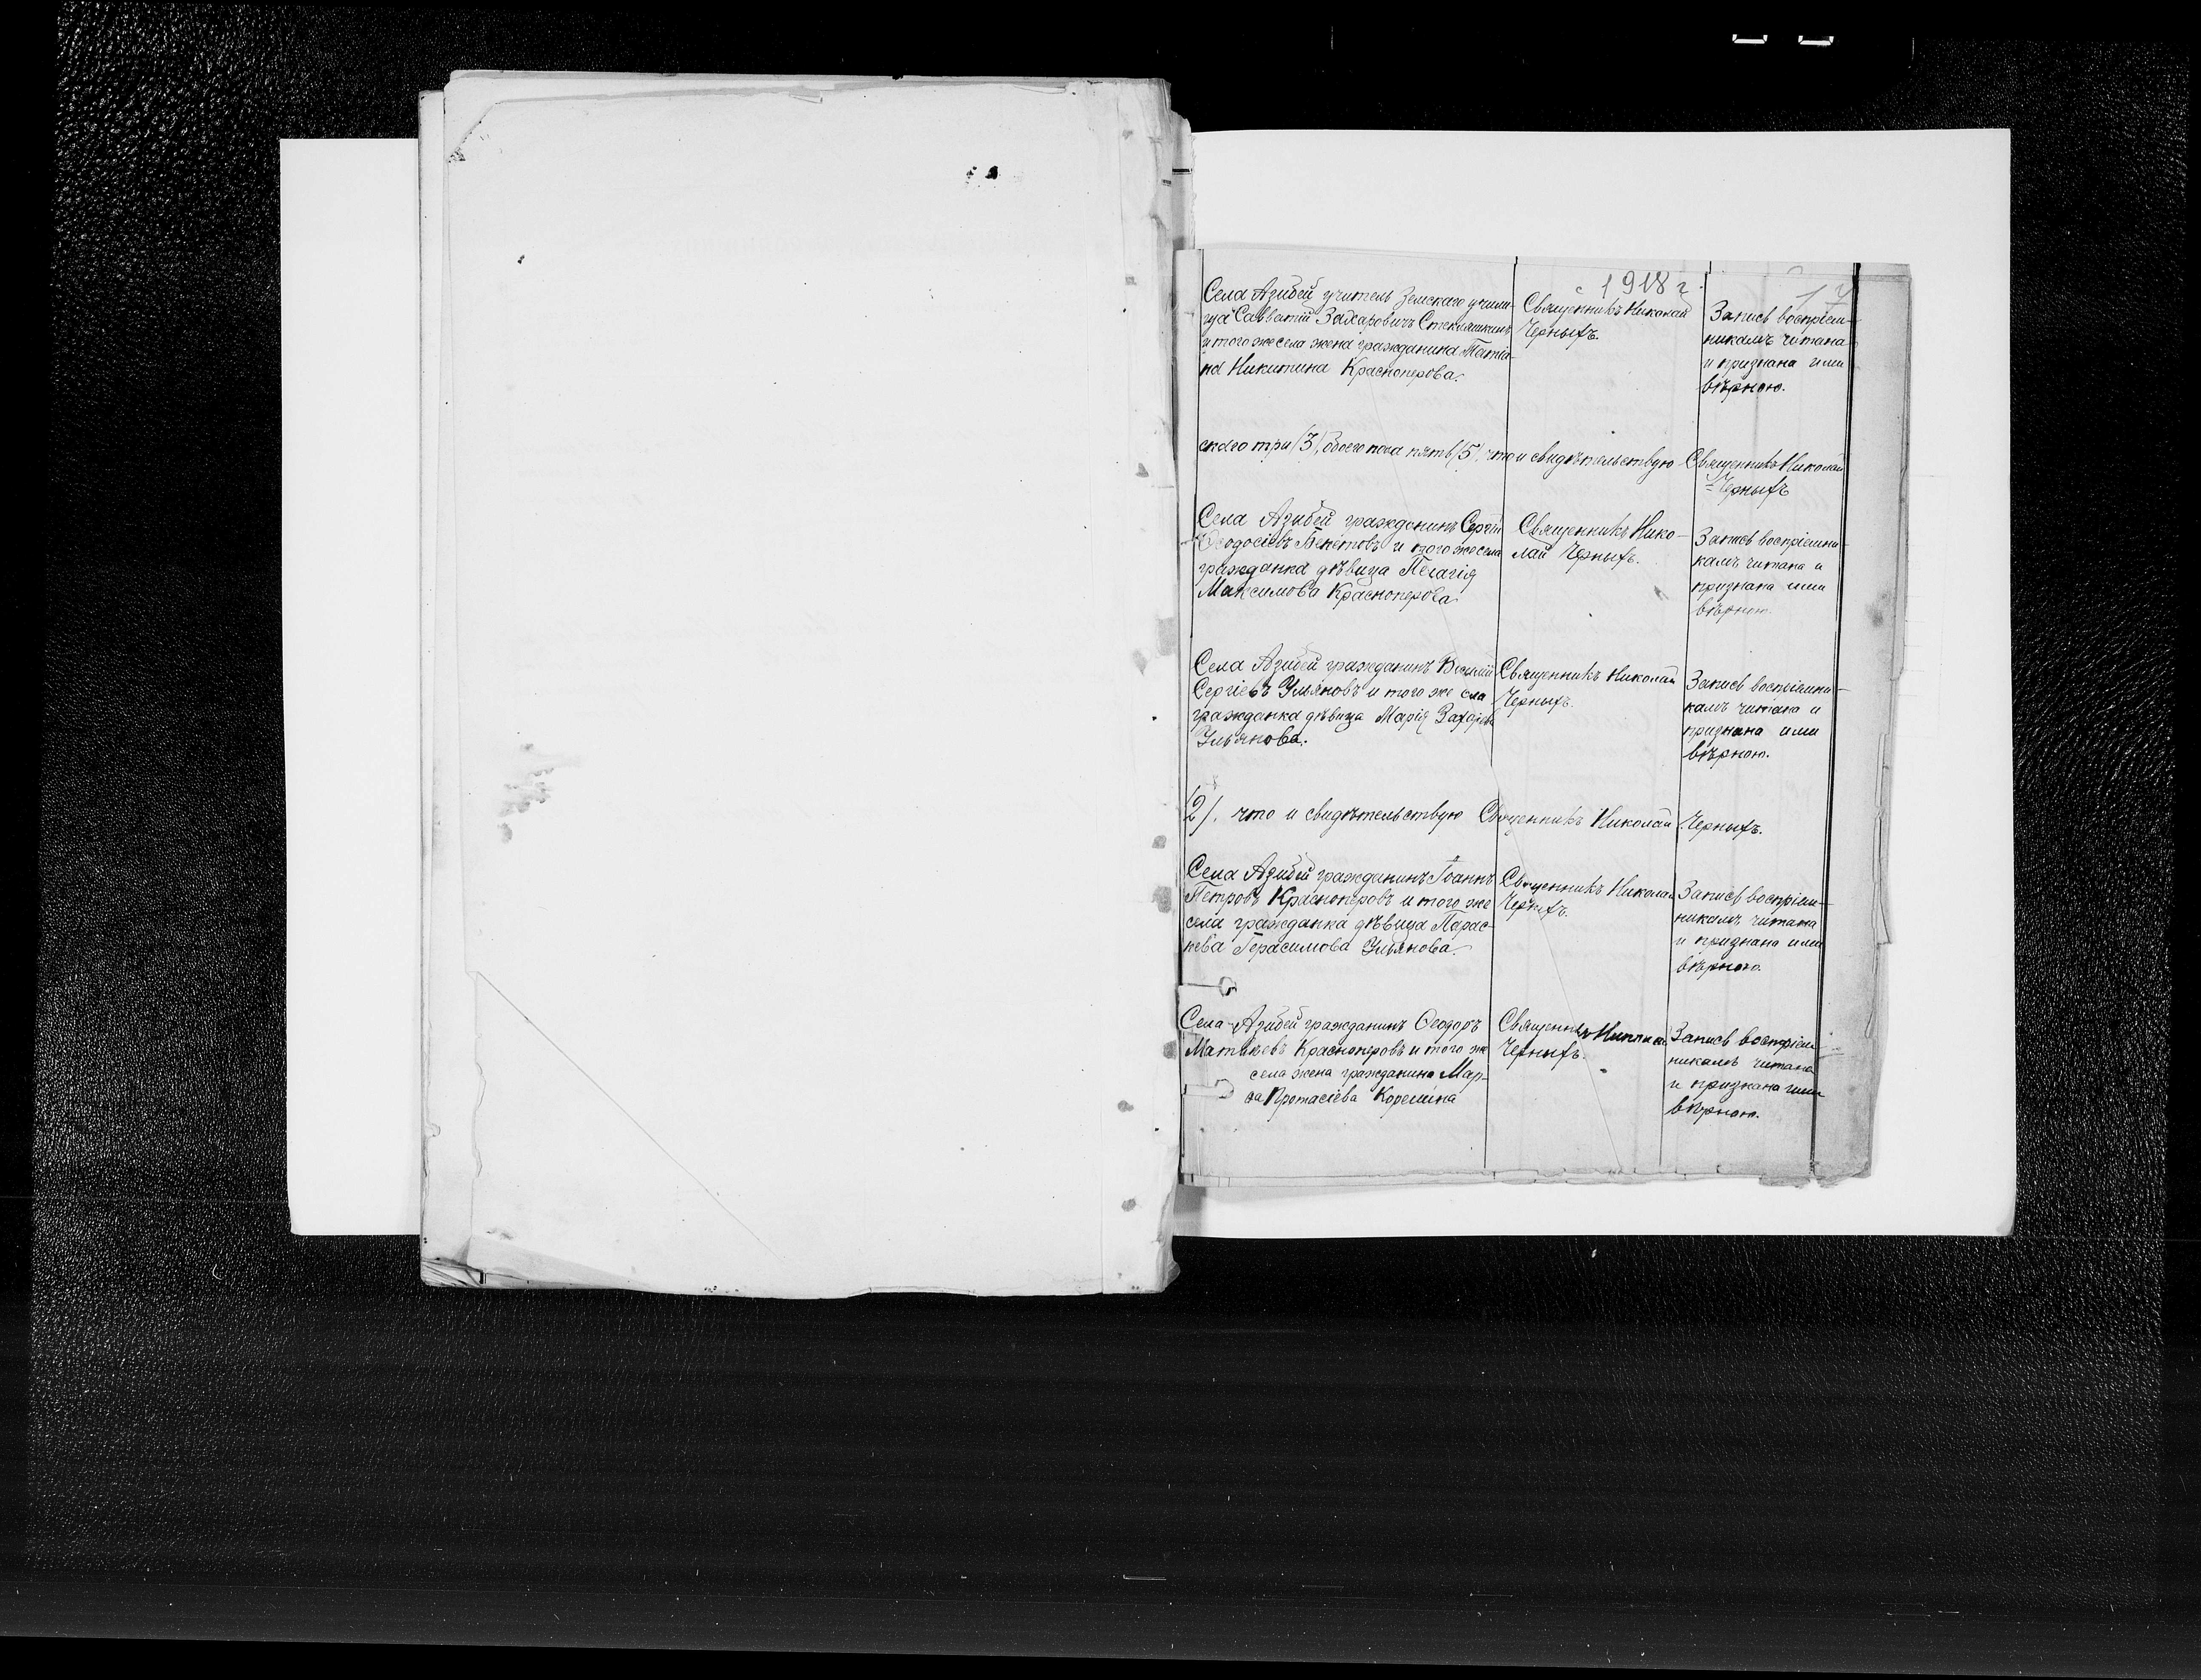 1918 г.
17
Села Азибей учитель Земскаго учили-
ща Савватій Захаровичъ Стекляшкинъ
и того же села жена гражданина Татіа-
на Никитина Красноперова.
Священникъ Николай
Черныхъ.
Запись воспріем-
никамъ читана
и признана ими
вѣрною.
скаго три (3), обоего пола пять (5), что и свидѣтельствую Священникъ Николай
Черныхъ
Села Азибей гражданинъ Сергій
Ѳеодосіевъ Бекетовъ и того же села
гражданка дѣвица Пелагія
Максимова Красноперова
Священникъ Нико-
лай Черныхъ.
Запись воспріемни-
камъ читана и
признана ими
вѣрною.
Села Азибей гражданинъ Василій
Сергіевъ Ульяновъ и того же села
гражданка дѣвица Марія Захарова
Ульянова.
Священникъ Николай
Черныхъ.
Запись воспріемни-
камъ читана и
признана ими
вѣрною.
(2). что и свидѣтельствую Священникъ Николай Черныхъ.
Села Азибей гражданинъ Іоаннъ
Петровъ Красноперовъ и того же
села гражданка дѣвица Парас-
кева Герасимова Ульянова.
Священникъ Николай
Черныхъ.
Запись воспріем-
никамъ читана
и признана ими
вѣрною.
Села Азибей гражданинъ Ѳеодоръ
Матвѣевъ Красноперовъ и того же
села жена гражданина Мар-
ѳа Протасіева Корелина
Священникъ Николай
Черныхъ.
Запись воспріем-
никамъ читана
и признана ими
вѣрною.